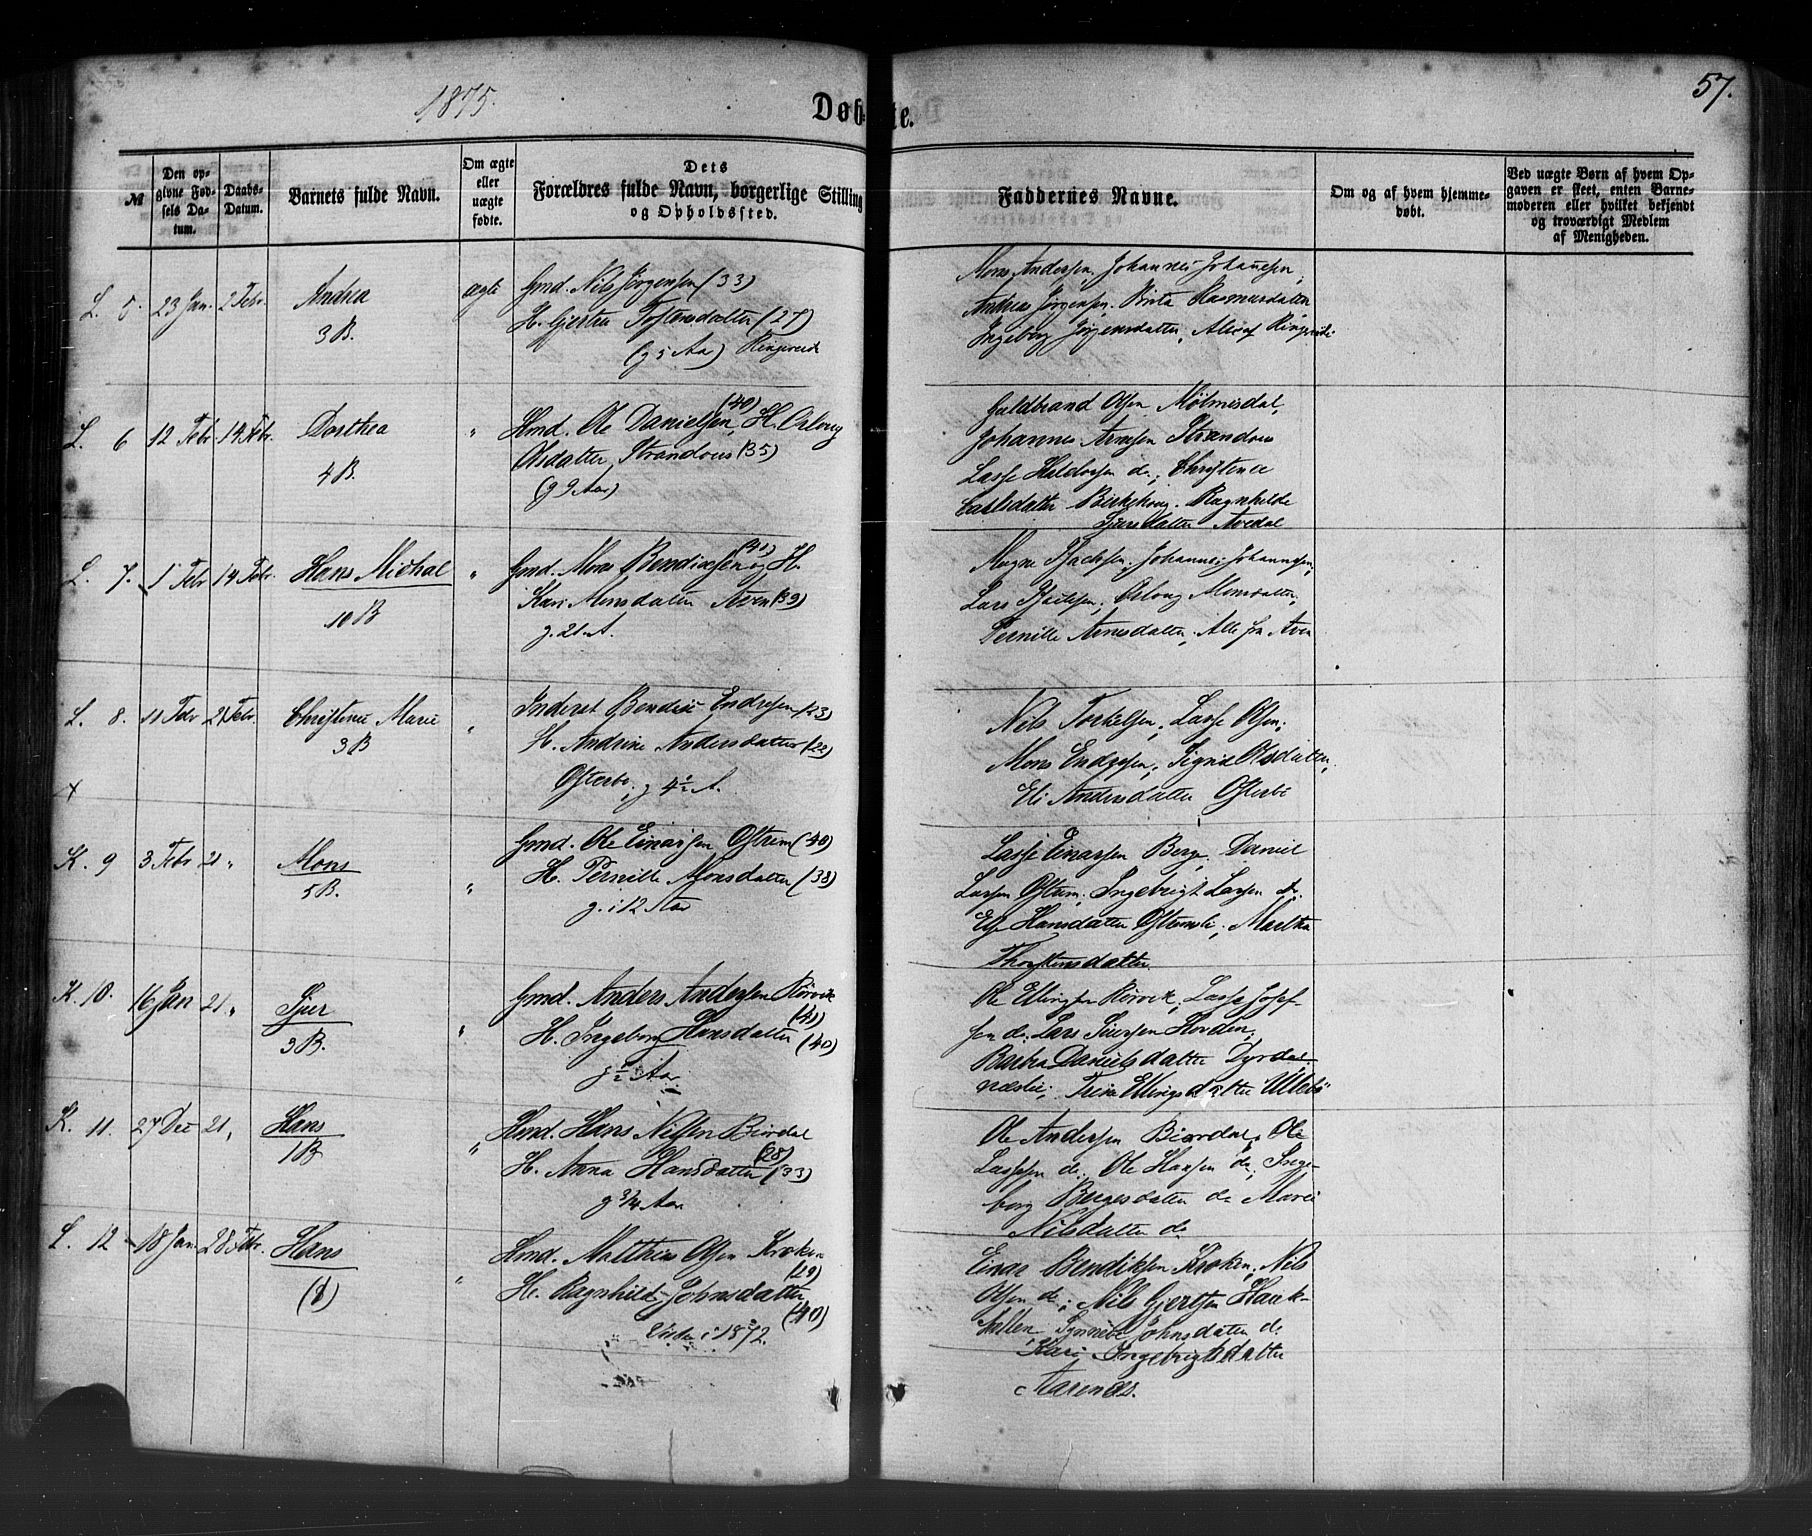 1875.
Døbte.
57.
№
Den opgivne Fødsels Datum.
Daabs-Datum.
Barnets fulde Navn.
Om ægte eller uægte fødte.
Dets Forældres fulde Navn, borgerlige Stilling og Opholdssted.
Faddernes Navne.
Om og af hvem hjemmedøbt.
Ved uægte Børn af hvem Opgaven er skeet, enten Barnemoderen eller hvilket bekjendt og troværdigt Medlem af Menigheden.
L. 5. 23 Jan. 2 Febr. Andrea ægte Gmd. Nils Jørgensen (33)
3 B. H. Gjertru Tostensdatter (27)
(g 5 Aar) Ringereid
Mons Andersen, Johannes Johannesen,
Andreas Jørgensen, Brita Rasmusdatter
Ingeborg Jørgensdatter, Alle af
L. 6 12 Febr 14 Febr. Dorthea " Hmd. Ole Danielsen (40), H. Osloug
4 B. Olsdatter, Strandous (35)
(g 9 Aar)
Guldbrand Olsen Mølmesdal,
Johannes Arnesen Strandous
Lasse Haldorsen do, Christence
Carlsdatter Ragnhilde
Sjursdatter Avedal
L. 7. 1 Febr 14 Febr. Hans Michal " Gmd. Mons Bendixsen (41) og H.
10 B Kari Monsdatter Aven (39)
g. 21 A.
Magne Johannes Johannesen,
Lars Osloug Monsdatter,
Pernille Arnesdatter, Alle fra Aven
L. 8. 11 Febr 21 Febr. Christence Marie " Inderst Bendix Endresen (23)
3 B H. Andrine Andersdatter (22)
Osterbø, g 4½ A.
x
Nils Torkelsen, Lasse Olsen,
Mons Endresen, Signe Olsdatter,
Eli Andersdatter Osterbø
K. 9 3 Febr 21 " Mons Gmd. Ole Einarsen Ostrem (40)
5 B. " H. Pernille Monsdatter (38)
g. i 12 Aar
Lasse Einarsen Berge, Daniel
Larsen Ostrem, Ingebrigt Larsen do.
Else Hansdatter Martha
Thorstensdatter
K. 10. 16 Jan 21 " Sjur Gmd. Anders Andersen Rørvik (41)
3 B. " H. Ingeborg Hansdatter (40)
g ½ Aar
Ole Ellingsen Rørvik, Lasse Josef-
sen do, Lars Sjursen
Barbra Danielsdatter Dyrdal
Trine Ellingsdatter
K. 11. 27 Dec 21 " Hans " Hmd. Hans Nilsen Bjordal (28)
1 B H. Anna Hansdatter (33)
g ¾ Aar
Ole Andersen Bjordal, Ole
Lassesen do, Ole Hansen do, Inge-
borg Børgesdatter do Marie
Nilsdatter do
L. 12 18 Jan 28 Febr. Hans " Hmd. Matthias Olsen Kroken (29)
(8) H. Ragnhild Johnsdatter (40)
Viede i 1872.
Einar Bendiksen Kroken, Nils
Olsen do, Nils Gjertsen Hauk-
Synneve Johnsdatter do
Kari Ingebrigtsdatter